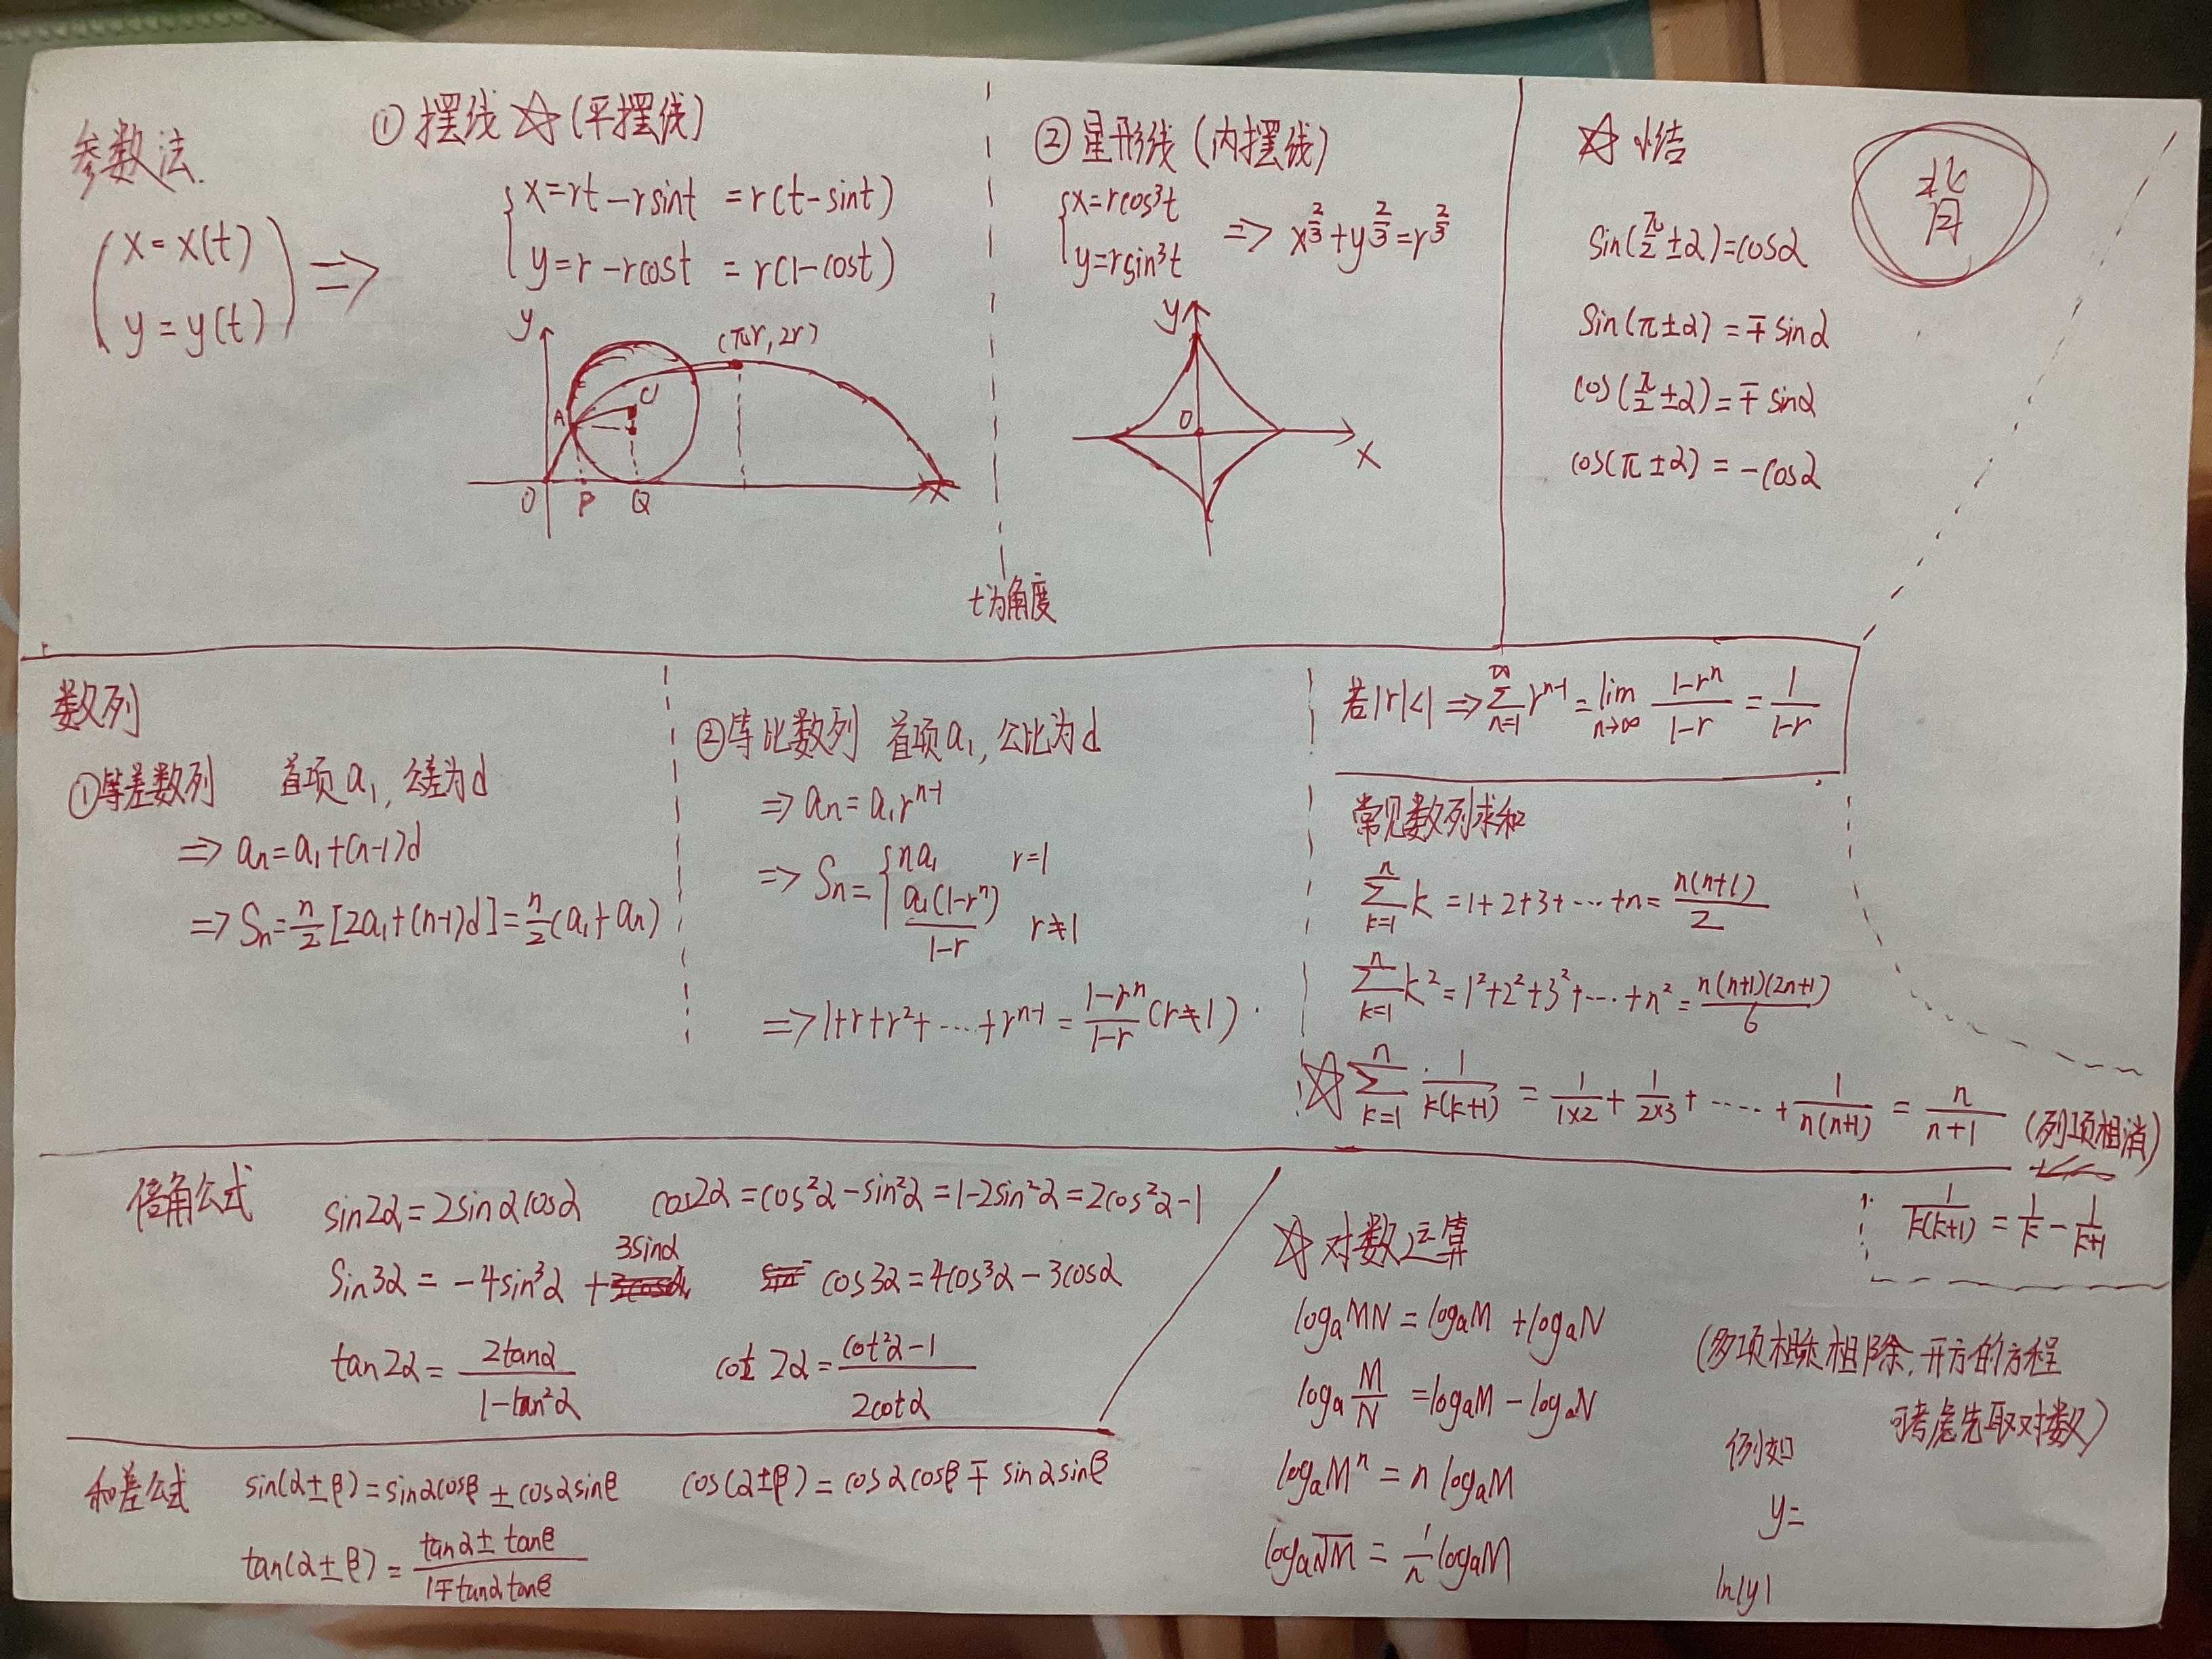 参数法
x=x(t)
y=y(t)
⇒
① 摆线 ☆ (平摆线)
x=rt-rsint =r(t-sint)
y=r-rcost =r(1-cost)
y
(πr, 2r)
A
C
O P Q
x
② 星形线 (内摆线)
x=rcos³t
y=rsin³t
⇒ x^(2/3)+y^(2/3)=r^(2/3)
y
O
x
t为角度
☆ 小结
背
sin(π/2±α)=cosα
sin(π±α)=∓sinα
cos(π/2±α)=∓sinα
cos(π±α)=-cosα
数列
①等差数列 首项a₁, 公差为d
⇒ aₙ=a₁+(n-1)d
⇒ Sₙ=n/2[2a₁+(n-1)d]=n/2(a₁+aₙ)
②等比数列 首项a₁, 公比为d
⇒ aₙ=a₁rⁿ⁻¹
⇒ Sₙ={ na₁ r=1
a₁(1-rⁿ)/(1-r) r≠1
⇒ 1+r+r²+…+rⁿ⁻¹=(1-rⁿ)/(1-r) (r≠1)
若|r|<1 ⇒ ∑(n=1→∞) rⁿ⁻¹=lim(n→∞) (1-rⁿ)/(1-r)=1/(1-r)
常见数列求和
∑(k=1→n) k=1+2+3+…+n=n(n+1)/2
∑(k=1→n) k²=1²+2²+3²+…+n²=n(n+1)(2n+1)/6
☆ ∑(k=1→n) 1/(k(k+1)) = 1/(1×2)+1/(2×3)+……+1/(n(n+1)) = n/(n+1) (列项相消)
1/(k(k+1))=1/k-1/(k+1)
倍角公式
sin2α=2sinαcosα cos2α=cos²α-sin²α=1-2sin²α=2cos²α-1
sin3α=-4sin³α+3sinα cos3α=4cos³α-3cosα
tan2α=2tanα/(1-tan²α) cot2α=(cot²α-1)/(2cotα)
和差公式
sin(α±β)=sinαcosβ±cosαsinβ cos(α±β)=cosαcosβ∓sinαsinβ
tan(α±β)=(tanα±tanβ)/(1∓tanαtanβ)
☆ 对数运算
logₐMN=logₐM+logₐN
logₐ(M/N)=logₐM-logₐN
logₐMⁿ=n logₐM
logₐ√M=1/n logₐM
(多项相乘,相除,开方的方程
可考虑先取对数)
例如
y=
ln|y|